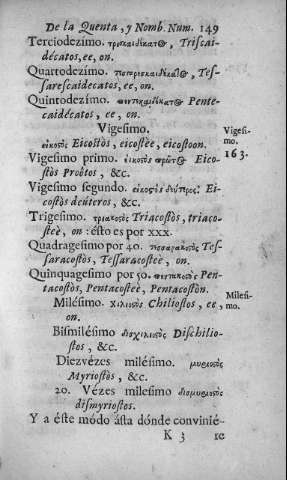 De la Quenta, y Nomb. Num. 149
Terciodezimo. τρισκαιδέκατος, Triscai-
décatos, ee, on.
Quartodezimo. τεσσαρισκαιδέκατος, Tes-
sarescaidécatos, ee, on.
Quintodezimo. πεντεκαιδέκατος Pente-
caidécatos, ee, on.
Vigesimo.
Vigesi-
mo.
εἰκοστὸς Eicostòs, eicosteè, eicostoon.
163.
Vigesimo primo. εἰκοστὸς πρῶτος Eico-
stòs Proôtos, &c.
Vigesimo segundo. εἰκοστὸς δεύτερος: Ei-
costòs deúteros, &c.
Trigesimo. τριακοστὸς Triacostòs, triaco-
steè, on: ésto es por xxx.
Quadragesimo por 40. τεσσαρακοστὸς Tes-
saracostòs, Tessaracosteè, on.
Quinquagesimo por 50. πεντηκοστὸς Pen-
tacostòs, Pentacosteè, Pentacostòn.
Milésimo. χιλιοστὸς Chiliostos, ee,
on.
Milesi-
mo.
Bismilésimo δισχιλιοστὸς Dischilio-
stos, &c.
Diezvézes milésimo. μυριοστὸς
Myriostos, &c.
20. Vézes milesimo δισμυριοστὸς
dismyriostos.
Y a éste módo ásta dónde convinié-
K 3 re